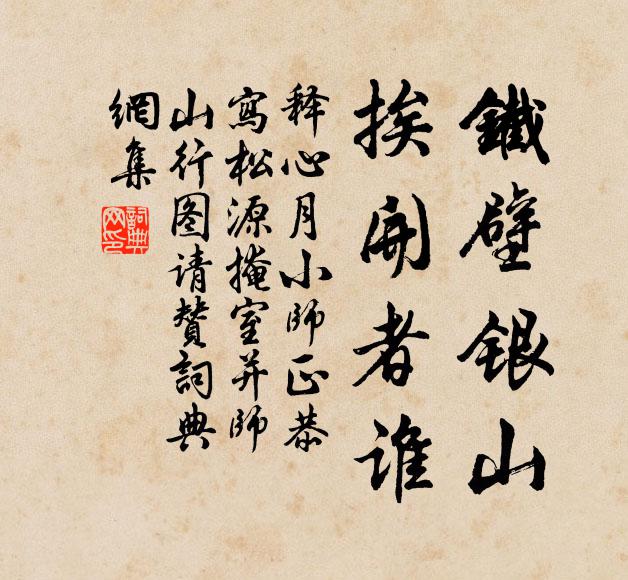 鐵壁銀山
挨開者谁
释心月小師正恭
寫松源掩室并師
山行图请贊詞典
網集
詞典網印